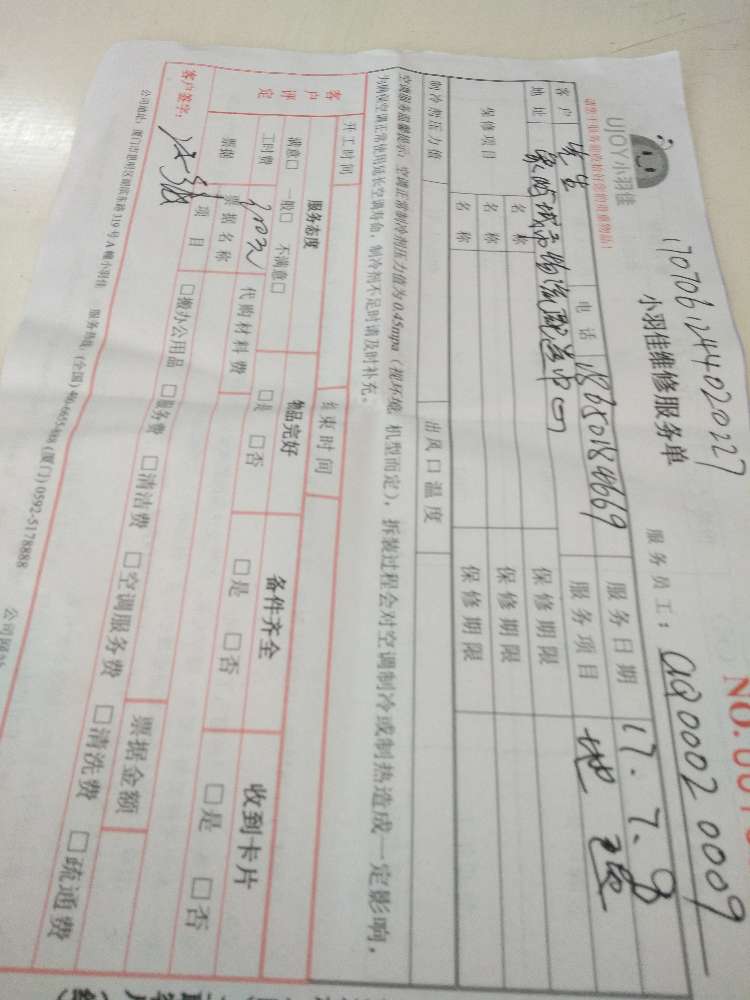 NO.001
1707061244020227
UJOY小羽佳
小羽佳维修服务单
服务员工：
请您于服务前收好您的贵重物品！
客户
先生
电话
服务日期
17.7.9
地址
服务项目
地
保修项目
名称
保修期限
名称
保修期限
名称
保修期限
制冷热压力值
出风口温度
空调服务温馨提示：空调正常制冷剂压力值为0.45mpa（视环境、机型而定），拆装过程会对空调制冷或制热造成一定影响，
为确保空调正常使用延长空调寿命，制冷剂不足时请及时补充。
开工时间
结束时间
客户评定
服务态度
物品完好
备件齐全
收到卡片
满意□ 一般□ 不满意□
□是 □否
□是 □否
□是 □否
工时费
200元
代购材料费
票据
票据名称
票据金额
项目
□搬办公用品 □服务费 □清洁费 □空调服务费 □清洗费 □疏通费
客户签字：
公司地址：厦门市思明区湖滨东路319号A幢小羽佳 服务热线：(全国)
(厦门) 0592-5178888
公司网站